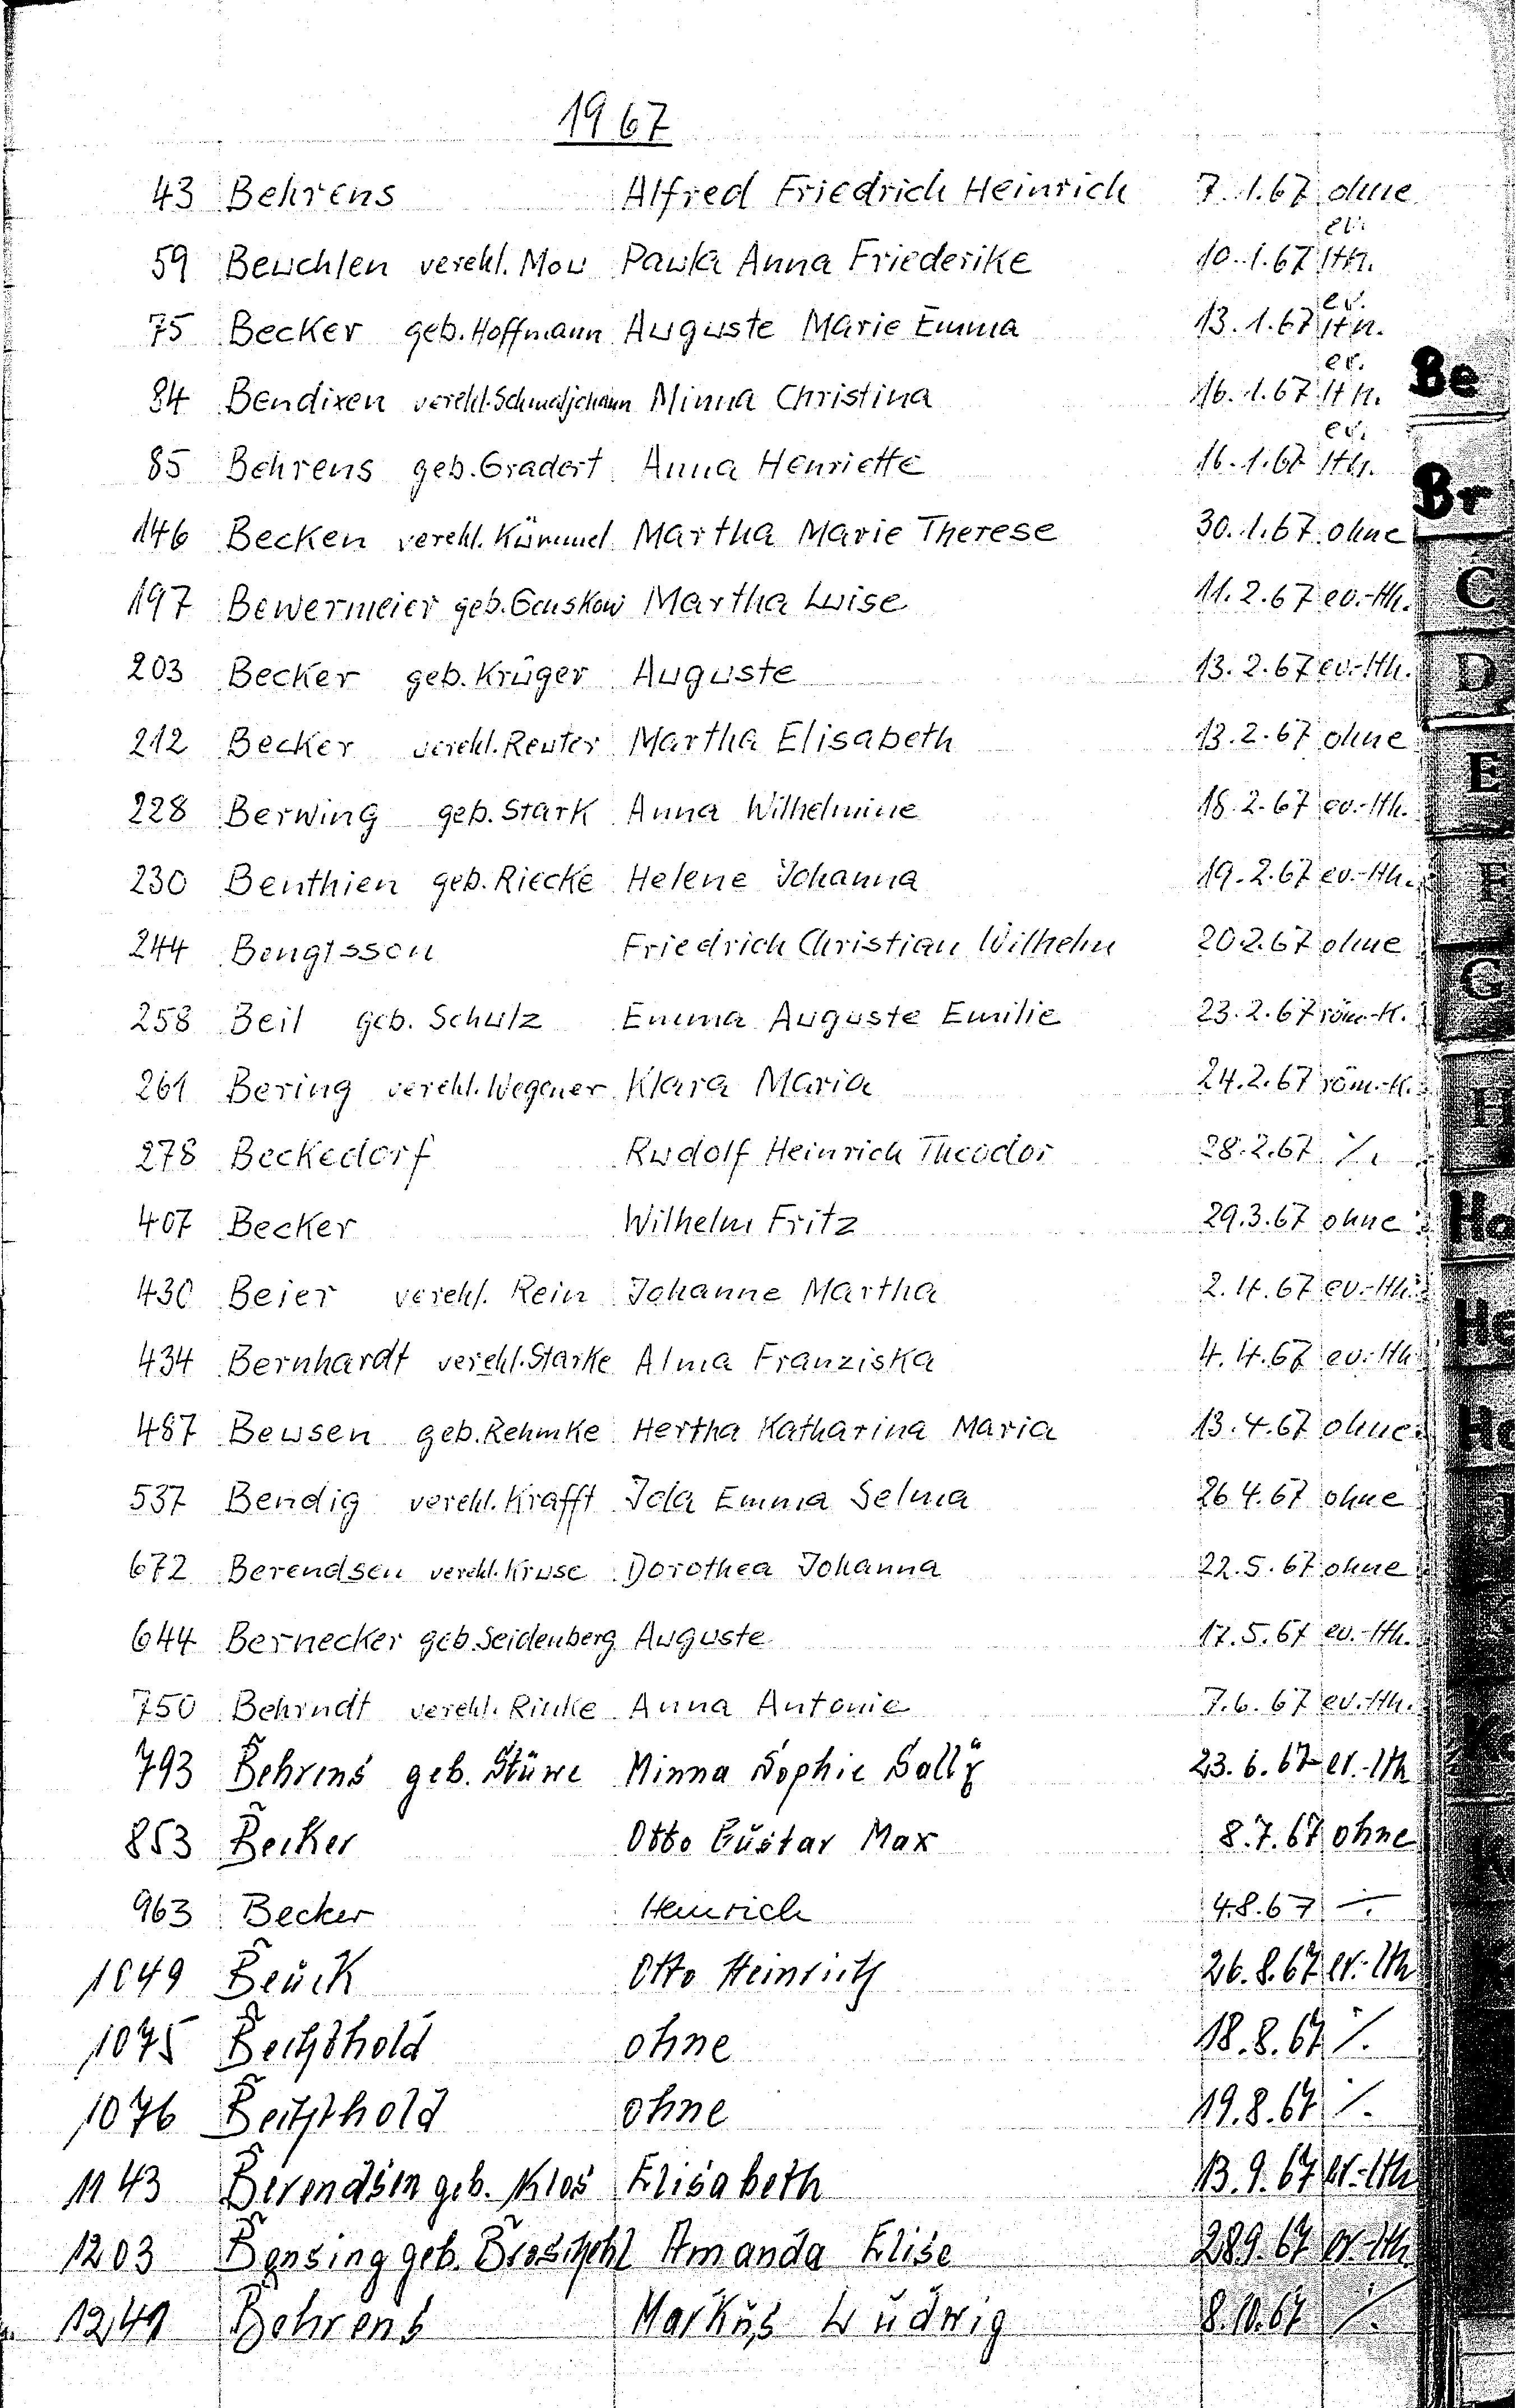 1967
43 Behrens Alfred Friedrich Heinrich 7.1.67 ohne
59 Beuchlen verehl. Mou Paula Anna Friederike 10.1.67 ev. lth.
75 Becker geb. Hoffmann Auguste Marie Emma 13.1.67 ev. lth.
84 Bendixen verehl. Schmaljohann Minna Christina 16.1.67 ev. lth.
Be
85 Behrens geb. Gradert Anna Henriette 16.1.67 ev. lth.
Br
146 Becken verehl. Kümmel Martha Marie Therese 30.1.67 ohne
197 Bewermeier geb. Genskow Martha Luise 11.2.67 ev.-lth.
C
203 Becker geb. Krüger Auguste 13.2.67 ev.-lth.
D
212 Becker verehl. Reuter Martha Elisabeth 13.2.67 ohne
E
228 Berwing geb. Stark Anna Wilhelmine 18.2.67 ev.-lth.
230 Benthien geb. Riecke Helene Johanna 19.2.67 ev.-lth.
F
244 Bengtsson Friedrich Christian Wilhelm 20.2.67 ohne
G
258 Beil geb. Schulz Emma Auguste Emilie 23.2.67 röm.-k.
261 Bering verehl. Wegener Klara Maria 24.2.67 röm.-k.
H
278 Beckedorf Rudolf Heinrich Theodor 28.2.67 ⁒
407 Becker Wilhelm Fritz 29.3.67 ohne
Ha
430 Beier verehl. Rein Johanne Martha 2.4.67 ev.-lth.
He
434 Bernhardt verehl. Starke Alma Franziska 4.4.67 ev.-lth
487 Beusen geb. Rehmke Hertha Katharina Maria 13.4.67 ohne
Ho
537 Bendig verehl. Krafft Ida Emma Selma 26.4.67 ohne
J
672 Berendsen verehl. Kruse Dorothea Johanna 22.5.67 ohne
644 Bernecker geb. Seidenberg Auguste 17.5.67 ev.-lth.
750 Behrndt verehl. Rinke Anna Antonie 7.6.67 ev.-lth.
793 Behrens geb. Stüwe Minna Sophie Sally 23.6.67 ev.-lth
853 Becker Otto Gustav Max 8.7.67 ohne
963 Becker Heinrich 4.8.67 ⁒
1049 Beuck Otto Heinrich 26.8.67 ev.-lth
1075 Bechthold ohne 18.8.67 ⁒
1076 Bechthold ohne 19.8.67 ⁒
1143 Berendsen geb. Klos Elisabeth 13.9.67 ev.-lth
1203 Bensing geb. Broschehl Amanda Elise 28.9.67 ev.-lth.
1241 Behrens Markus Ludwig 8.10.67 ⁒